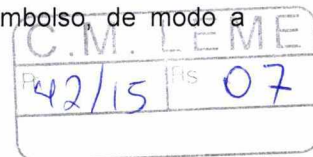 mbolso de modo a
C.M. LEME
Pr 42/15 Fls 07